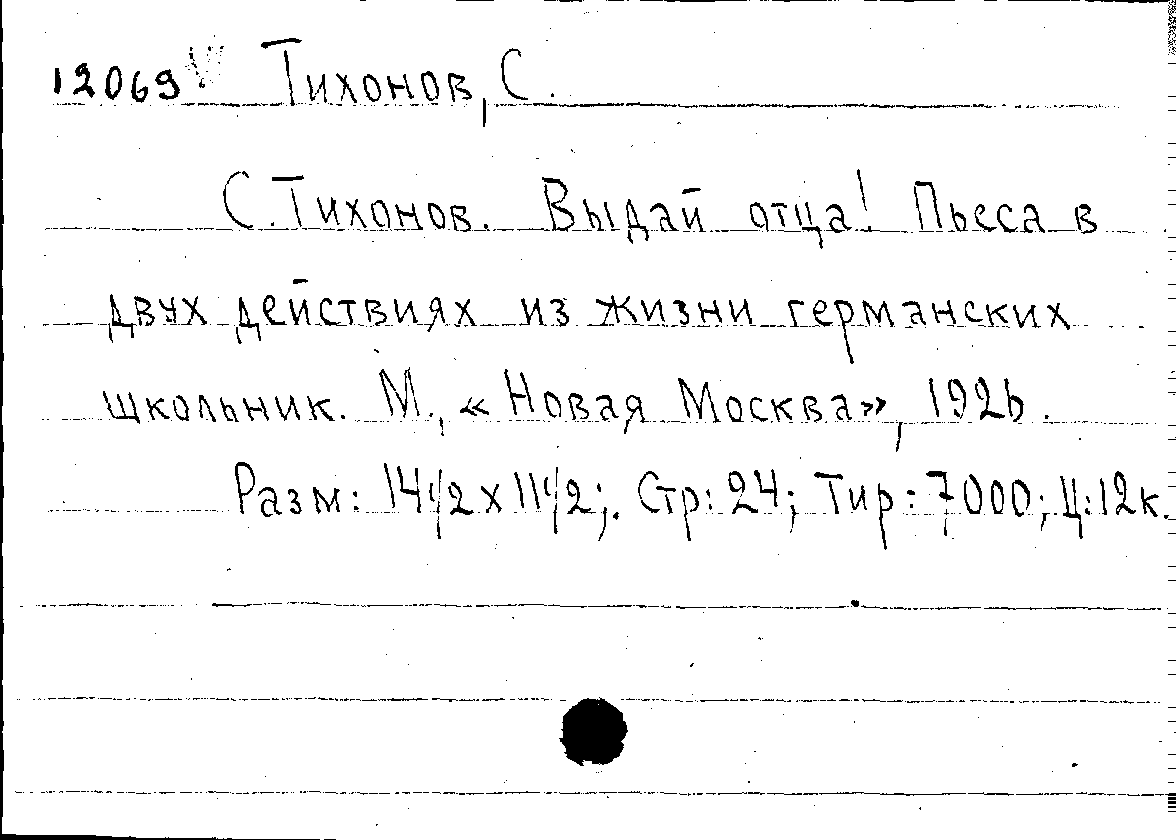 12069 Тихонов, С.
С. Тихонов. Выдай отца! Пьеса в
двух действиях из жизни германских
школьник. М., «Новая Москва», 1926.
Разм: 14 1/2 x 11 1/2; Стр: 24; Тир: 7000; Ц: 12 к.